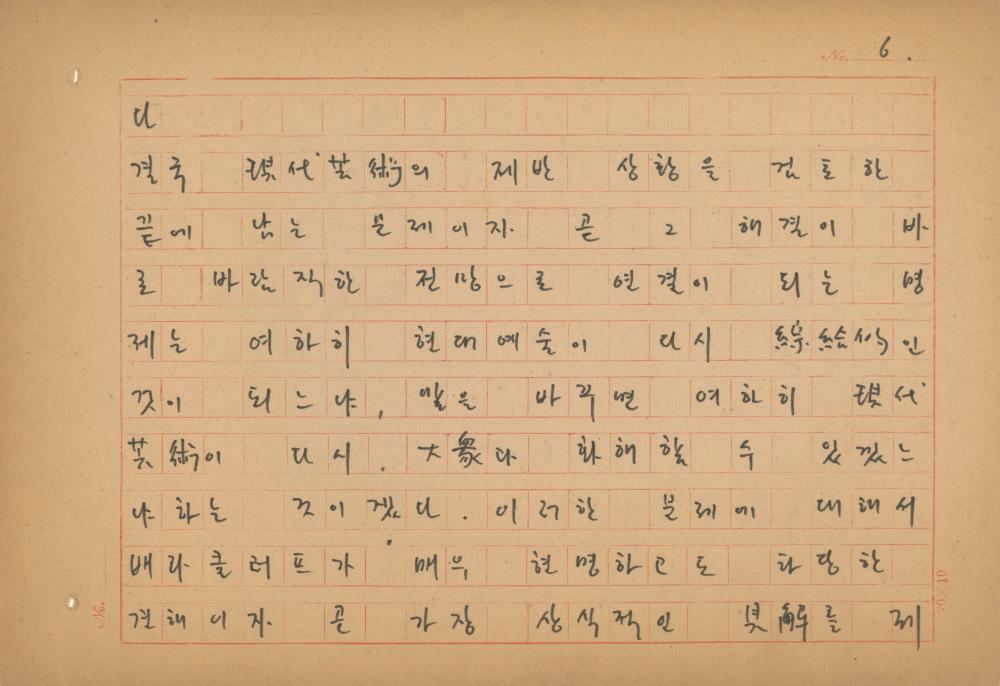 No. 6.
다
결국 現代芸術의 제반 상황을 검토한
끝에 남는 문제이자 곧 그 해결이 바
로 바람직한 전망으로 연결이 되는 명
제는 여하히 현대예술이 다시 綜合的인
것이 되느냐, 말을 바꾸면 여하히 現代
芸術이 다시. 大衆과 화해할 수 있겠느
냐 하는 것이겠다. 이러한 문제에 대해서
배라클러프가 매우 현명하고도 타당한
견해이자 곧 가장 상식적인 見解를 제
No.
20×10